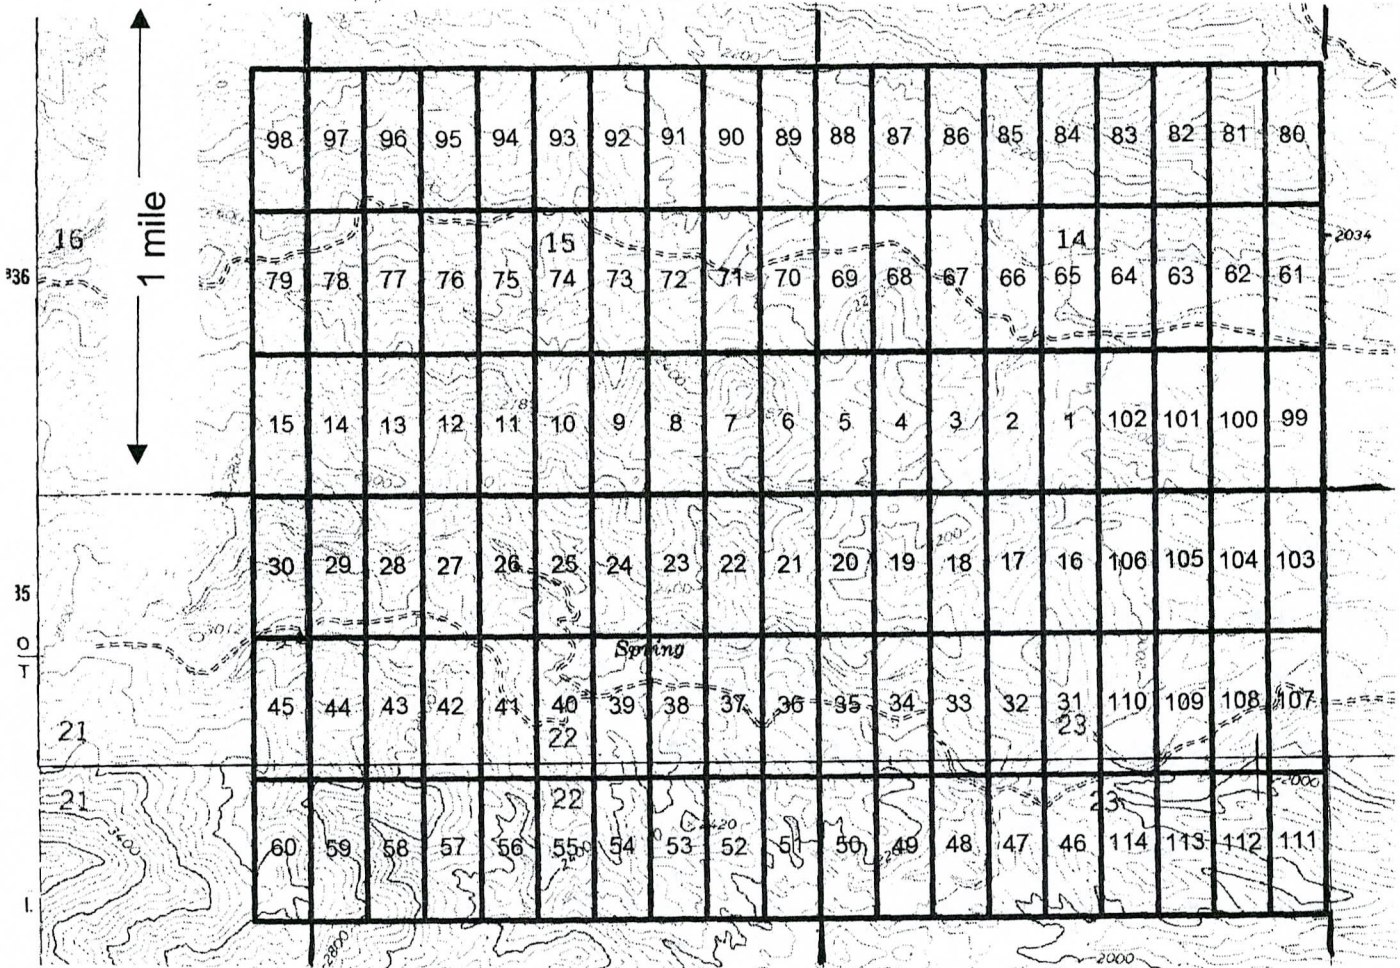 98 97 96 95 94 93 92 91 90 89 88 87 86 85 84 83 82 81 80
1 mile
16 15 14 2034
336 79 78 77 76 75 74 73 72 71 70 69 68 67 66 65 64 63 62 61
15 14 13 12 11 10 9 8 7 6 5 4 3 2 1 102 101 100 99
30 29 28 27 26 25 24 23 22 21 20 19 18 17 16 106 105 104 103
35
3012
O
T
Spring
45 44 43 42 41 40 39 38 37 36 35 34 33 32 31 110 109 108 107
21 22 23
2000
21 22 23
2420
3400
60 59 58 57 56 55 54 53 52 51 50 49 48 47 46 114 113 112 111
2400
I.
2800 2000